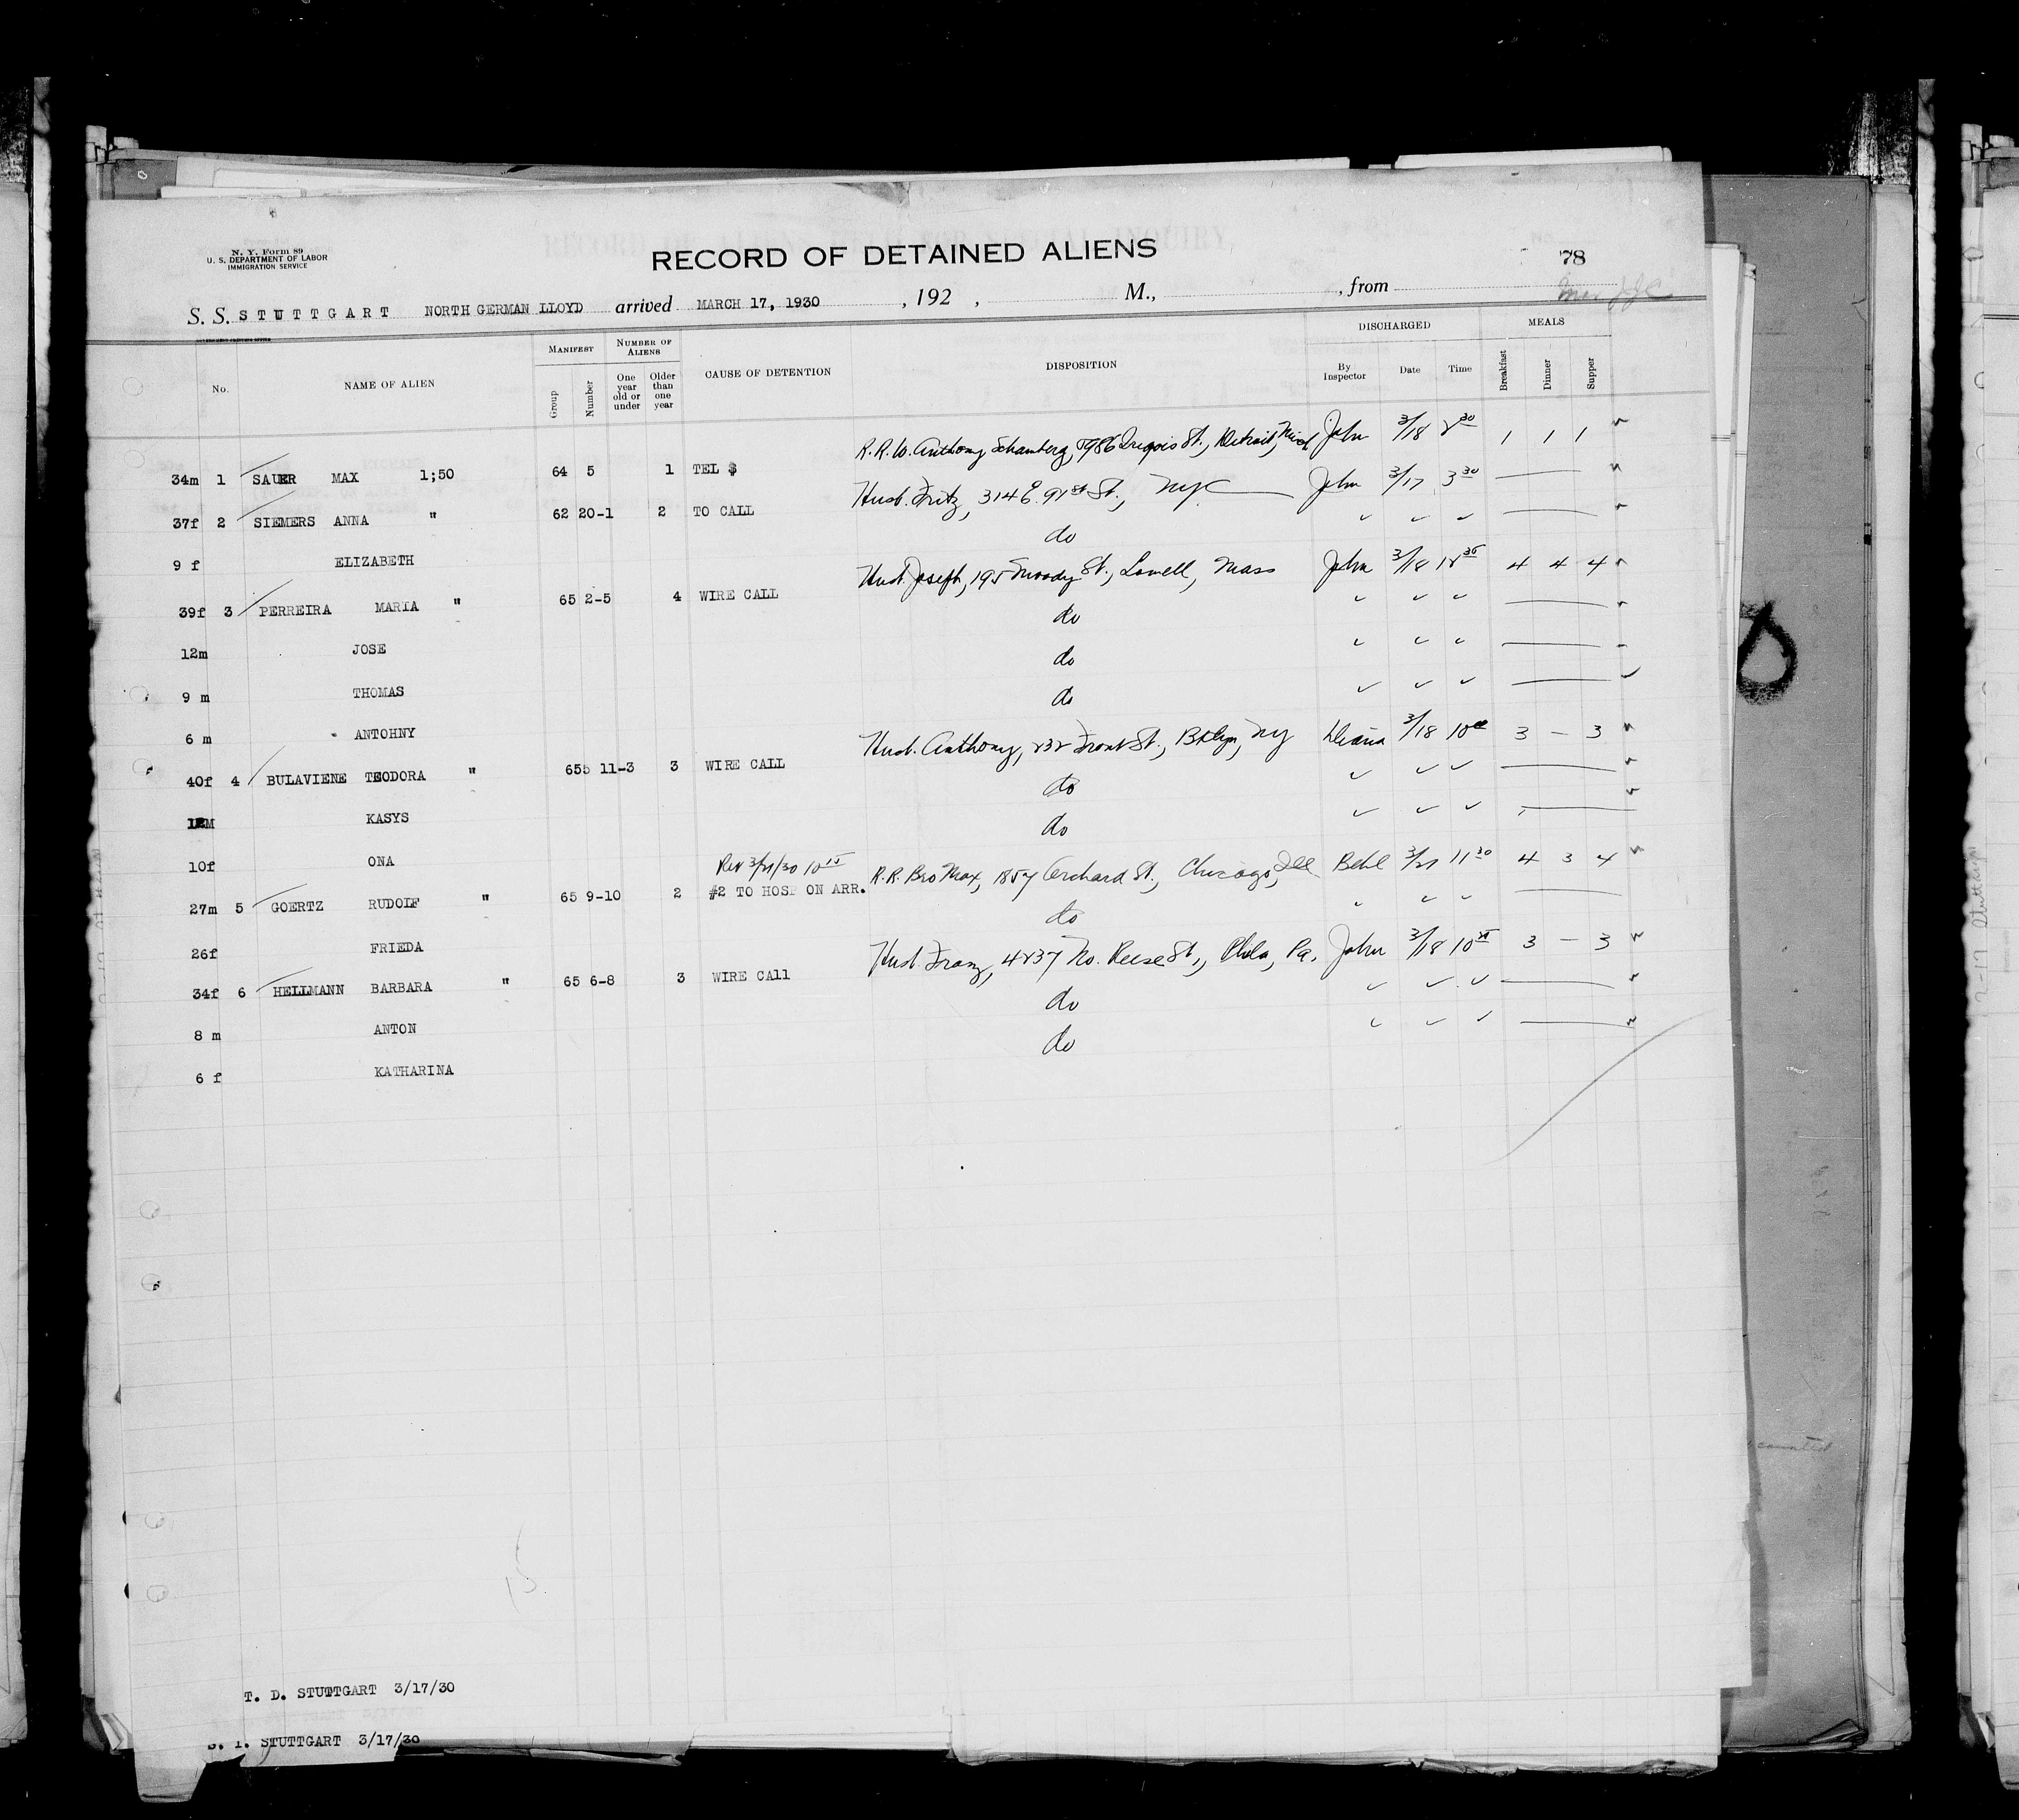 N. Y. Form 89
U. S. DEPARTMENT OF LABOR
IMMIGRATION SERVICE
RECORD OF DETAINED ALIENS
78
S. S. STUTTGART NORTH GERMAN LLOYD arrived MARCH 17, 1930 , 192 , M., , from
No. NAME OF ALIEN MANIFEST Group Number NUMBER OF ALIENS One year old or under Older than one year CAUSE OF DETENTION DISPOSITION DISCHARGED By Inspector Date Time MEALS Breakfast Dinner Supper
34m 1 SAUER MAX 1;50 64 5 1 TEL $ R.R. W. Anthony Schamberg, Iroquois St., Detroit, Mich John 3/18 1 1 1
37f 2 SIEMERS ANNA " 62 20-1 2 TO CALL Husb. Fritz, 314 E. 91st St., NYC John 3/17 3 30
9 f ELIZABETH do
39f 3 PERREIRA MARIA " 65 2-5 4 WIRE CALL Husb Joseph, 195 Moody St., Lowell, Mass John 3/18 4 4 4
12m JOSE do
9 m THOMAS do
6 m ANTOHNY do
40f 4 BULAVIENE TEODORA " 655 11-3 3 WIRE CALL Husb. Anthony, 232 Front St., Bklyn, NY 3/18 10 3 — 3
KASYS do
10f ONA do
27m 5 GOERTZ RUDOLF " 65 9-10 2 Rev 3/21/30 10 15 #2 TO HOSP ON ARR. R.R. Bro Max, 1857 Orchard St., Chicago, Ill 3/21 11 30 4 3 4
26f FRIEDA do
34f 6 HELLMANN BARBARA " 65 6-8 3 WIRE CAll Husb. Franz, 4237 No. Reese St., Phila, Pa. John 3/18 10 3 — 3
8 m ANTON do
6 f KATHARINA do
15
T. D. STUTTGART 3/17/30
S. I. STUTTGART 3/17/30